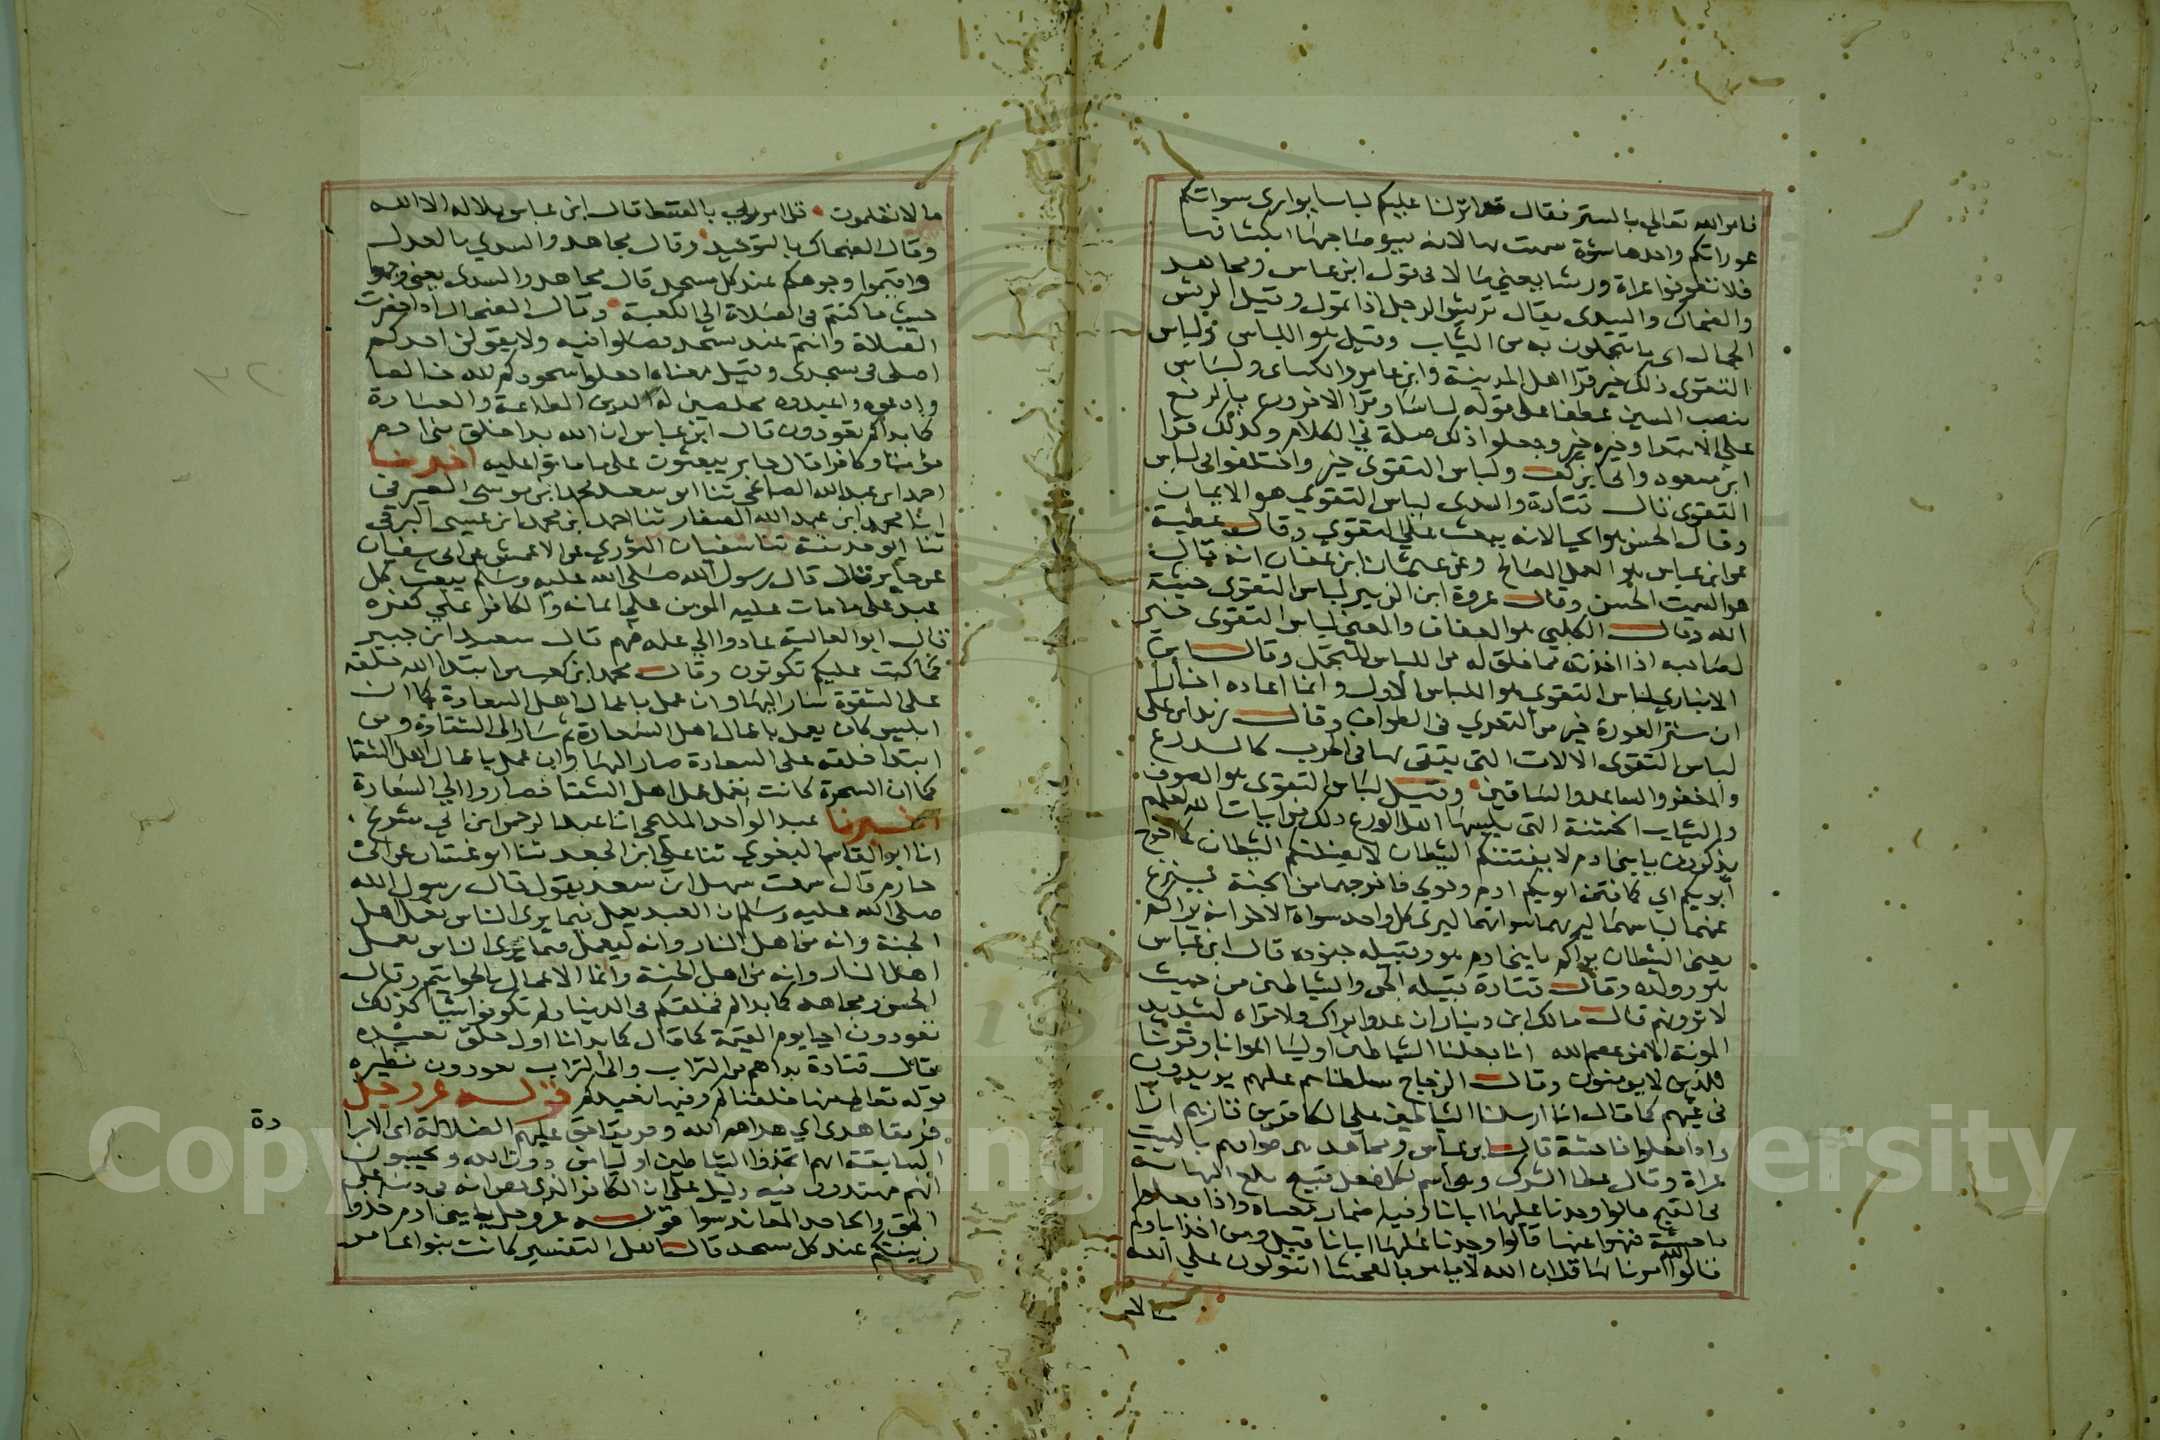 فامر الله تعالى بالستر فقال قد انزلنا عليكم لباسا يوارى سواتكم
عوراتكم واحدها سؤة سميت بها لانه يسوء صاحبها انكشافها
فلا تطوفوا عراة وريشا يعني مالا في قول ابن عباس ومجاهد
والضحاك والسدى يقال تريش الرجل اذا تمول وقيل الريش
الجمال اى ما يتجملون به من الثياب وقيل هو اللباس ولباس
التقوى ذلك خير قرا اهل المدينة وابن عامر والكساى ولباس
بنصب السين عطفا على قوله لباسا وقرا الاخرون بالرفع
على الابتدا وخبره خير وجعلوا ذلك صلة في الكلام وكذلك قرا
ابن مسعود وابى ابن كعب ولباس التقوى خير واختلفوا فى لباس
التقوى قال قتادة والسدى لباس التقوي هو الايمان
وقال الحسن هو الحيا لانه يبعث على التقوي وقال عطية
عن ابن عباس هو العمل الصالح وعن عثمان ابن عفان انه قال
هو السمت الحسن وقال عروة ابن الزبير لباس التقوى خشية
الله وقال الكلبي هو العفاف والمعنى لباس التقوى خير
لصاحبه اذا اخذ به مما خلق له من اللباس للتجمل وقال ابن
الانباري لباس التقوى هو اللباس الاول وانما اعاده اخبارا
ان ستر العورة خير من التعري في الطواف وقال زيد ابن على
لباس التقوى الالات التى يتقى بها فى الحرب كالدرع
والمغفر والساعد والساقين وقيل لباس التقوى هو الصوف
والثياب الخشنة التى يلبسها اهل الورع ذلك من ايات الله لعلهم
يذكرون يا بنى ادم لا يفتننكم الشيطان لا يضلنكم الشيطان كما اخرج
ابويكم اي كما فتن ابويكم ادم وحوي فاخرجهما من الجنة ينزع
عنهما لباسهما ليريهما سواتهما ليرى كل واحد سواة الاخر انه يراكم
يعنى الشيطان يراكم يا بنى ادم هو وقبيله جنوده قال ابن عباس
هو وولده وقال قتادة قبيله الجن والشياطين من حيث
لا ترونهم قال مالك ابن دينار ان عدوا يراك ولا تراه لشديد
المونة الا من عصم الله انا جعلنا الشياطين اوليا اعوانا وقرنا
للذين لا يومنون وقال الزجاج سلطناهم عليهم يزيدون
فى غيهم كما قال انا ارسلنا الشياطين على الكافرين تازهم ازا
واذا فعلوا فاحشة قال ابن عباس ومجاهد هى طوافهم بالبيت
عراة وقال عطا الشرك وهى اسم لكل فعل قبيح بلغ النهاية
فى القبح قالوا وجدنا عليها اباءنا وفيه اضمار معناه واذا فعلوا
فاحشة فنهوا عنها قالوا وجدنا عليها اباءنا قيل ومن اين اخذ اباوكم
قالوا الله امرنا بها قل ان الله لا يامر بالفحشا اتقولون على الله
مالا
ما لا تعلمون قل امر ربي بالقسط قال ابن عباس بلا اله الا الله
وقال الضحاك بالتوحيد وقال مجاهد والسدي بالعدل
واقيموا وجوهكم عند كل مسجد قال مجاهد والسدى يعنى وجهوا
حيث ما كنتم فى الصلاة الى الكعبة وقال الضحاك اذا حضرت
الصلاة وانتم عند مسجد فصلوا فيه ولا يقولن احدكم
اصلى فى مسجدى وقيل معناه اجعلوا سجودكم لله خالصا
وادعوه واعبدوه مخلصين له الدين الطاعة والعبادة
كما بداكم تعودون قال ابن عباس ان الله بدا خلق بنى ادم
مؤمنا وكافرا قال جابر يبعثون على ما ماتوا عليه اخبرنا
احمد ابن عبد الله الصالحى ثنا ابو سعيد محمد ابن موسى الصيرفى
انا محمد ابن عبد الله الصفار ثنا احمد ابن محمد ابن عيسى البرقى
ثنا ابو حذيفة ثنا سفيان الثوري عن الاعمش عن ابى سفيان
عن جابر قال قال رسول الله صلى الله عليه وسلم يبعث كل
عبد على ما مات عليه المومن على ايمانه والكافر على كفره
قال ابو العالية عادوا الي علمه فيهم قال سعيد ابن جبير
كما كتب عليكم تكونون وقال محمد ابن كعب من ابتدا الله خلقه
على الشقوة صار اليها وان عمل باعمال اهل السعادة كما ان
ابليس كان يعمل باعمال اهل السعادة ثم صار الى الشقاوة ومن
ابتدا خلقه على السعادة صار اليها وان عمل باعمال اهل الشقا
كما ان السحرة كانت تعمل عمل اهل الشقا فصاروا الى السعادة
اخبرنا عبد الواحد المليحى انا عبد الرحمن ابن ابى شريح
انا ابو القاسم البغوي ثنا على ابن الجعد ثنا ابو غسان عن ابى
حازم قال سمعت سهل ابن سعد يقول قال رسول الله
صلى الله عليه وسلم ان العبد يعمل فيما يرى الناس بعمل اهل
الجنة وانه من اهل النار وانه ليعمل فيما يرى الناس بعمل
اهل النار وانه من اهل الجنة وانما الاعمال بالخواتم وقال
الحسن ومجاهد كما بداكم فخلقكم فى الدنيا ولم تكونوا شيا كذلك
تعودون احيا يوم القيمة كما قال كما بدانا اول خلق نعيده
قال قتادة بداهم من التراب والى التراب يعودون نظيره
قوله تعالى منها خلقناكم وفيها نعيدكم قوله عز وجل
فريقا هدى اي هداهم الله وفريقا حق عليهم الضلالة اى الارا
دة
السابقة انهم اتخذوا الشياطين اوليا من دون الله ويحسبون
انهم مهتدون فيه دليل على ان الكافر الذى يظن انه فى دينه على
الحق والجاحد المعاند سوا قوله عز وجل يا بنى ادم خذوا
زينتكم عند كل مسجد قال اهل التفسير كانت بنوا عامر
Copyright © King Saud University